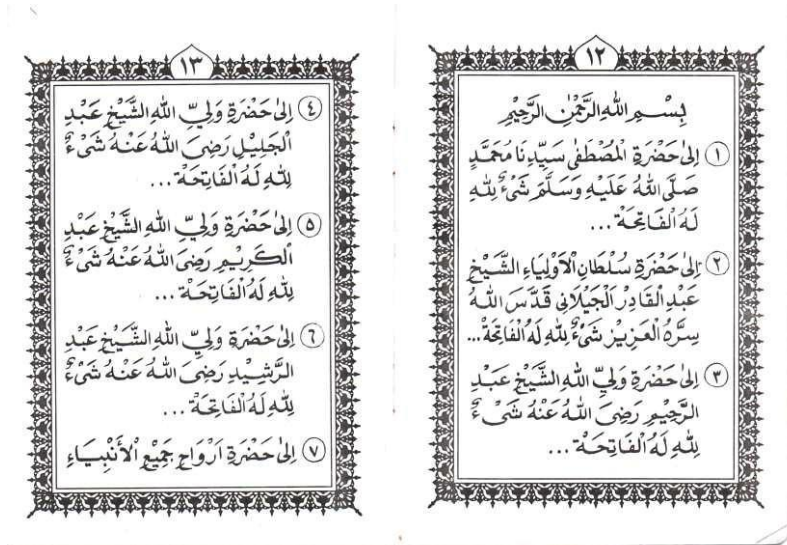 ١٢
بِسْمِ اللهِ الرَّحْمٰنِ الرَّحِيْمِ
١ اِلىٰ حَضْرَةِ الْمُصْطَفىٰ سَيِّدِنَا مُحَمَّدٍ
صَلَّى اللهُ عَلَيْهِ وَسَلَّمَ شَىْءٌ لِلّٰهِ
لَهُ الْفَاتِحَةْ...
٢ اِلىٰ حَضْرَةِ سُلْطَانِ الْاَوْلِيَاءِ الشَّيْخِ
عَبْدِ الْقَادِرِ الْجَيْلَانِى قَدَّسَ اللهُ
سِرَّهُ الْعَزِيْزِ شَىْءٌ لِلّٰهِ لَهُ الْفَاتِحَةْ...
٣ اِلىٰ حَضْرَةِ وَلِيِّ اللهِ الشَّيْخِ عَبْدِ
الرَّحِيْمِ رَضِىَ اللهُ عَنْهُ شَىْءٌ
لِلّٰهِ لَهُ الْفَاتِحَةْ...
١٣
٤ اِلىٰ حَضْرَةِ وَلِيِّ اللهِ الشَّيْخِ عَبْدِ
الْجَلِيْلِ رَضِىَ اللهُ عَنْهُ شَىْءٌ
لِلّٰهِ لَهُ الْفَاتِحَةْ...
٥ اِلىٰ حَضْرَةِ وَلِيِّ اللهِ الشَّيْخِ عَبْدِ
الْكَرِيْمِ رَضِىَ اللهُ عَنْهُ شَىْءٌ
لِلّٰهِ لَهُ الْفَاتِحَةْ...
٦ اِلىٰ حَضْرَةِ وَلِيِّ اللهِ الشَّيْخِ عَبْدِ
الرَّشِيْدِ رَضِىَ اللهُ عَنْهُ شَىْءٌ
لِلّٰهِ لَهُ الْفَاتِحَةْ...
٧ اِلىٰ حَضْرَةِ اَرْوَاحِ جَمِيْعِ الْأَنْبِيَاءِ